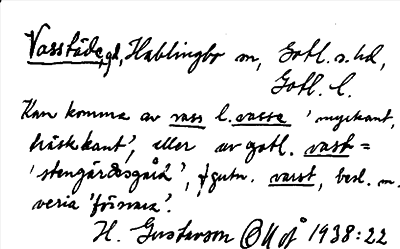 Vasstäde, gd, Hablingbo sn, Gotl. s. hd,
Gotl. l.
Kan komma av vass l. vassa 'myrkant,
träskkant', eller av gotl. vast =
'stengärdesgård', fgutn. varst, besl. m.
veria 'försvara'.
H. Gustavson OUÅ 1938:22